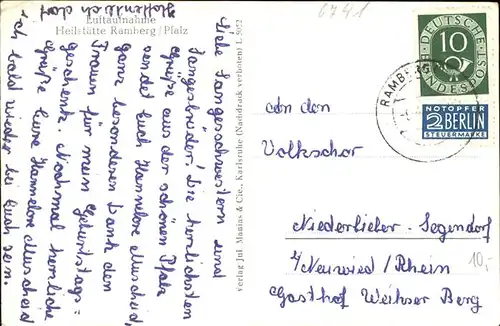 Luftaufnahme
Heilstätte Ramberg / Pfalz
Liebe Sangesschwestern und
Sangesbrüder! Die herzlichsten
Grüße aus der schönen Pfalz
sendet Euch Hannelore Muscheid,
ganz besonderen Dank den
Frauen für mein Geburtstags=
geschenk. Nochmal herzliche
Grüße Eure Hannelore Muscheid
Hoffentlich darf
ich bald wieder bei Euch sein.
Verlag Jul. Manias & Cie., Karlsruhe (Nachdruck verboten) L 5052
6741
DEUTSCHE
BUNDESPOST
10
RAMBERG
NOTOPFER
2 BERLIN
STEUERMARKE
An den
Volkschor
Niederbieber-Segendorf
b/Neuwied / Rhein
Gasthof Weihser Berg
10,-